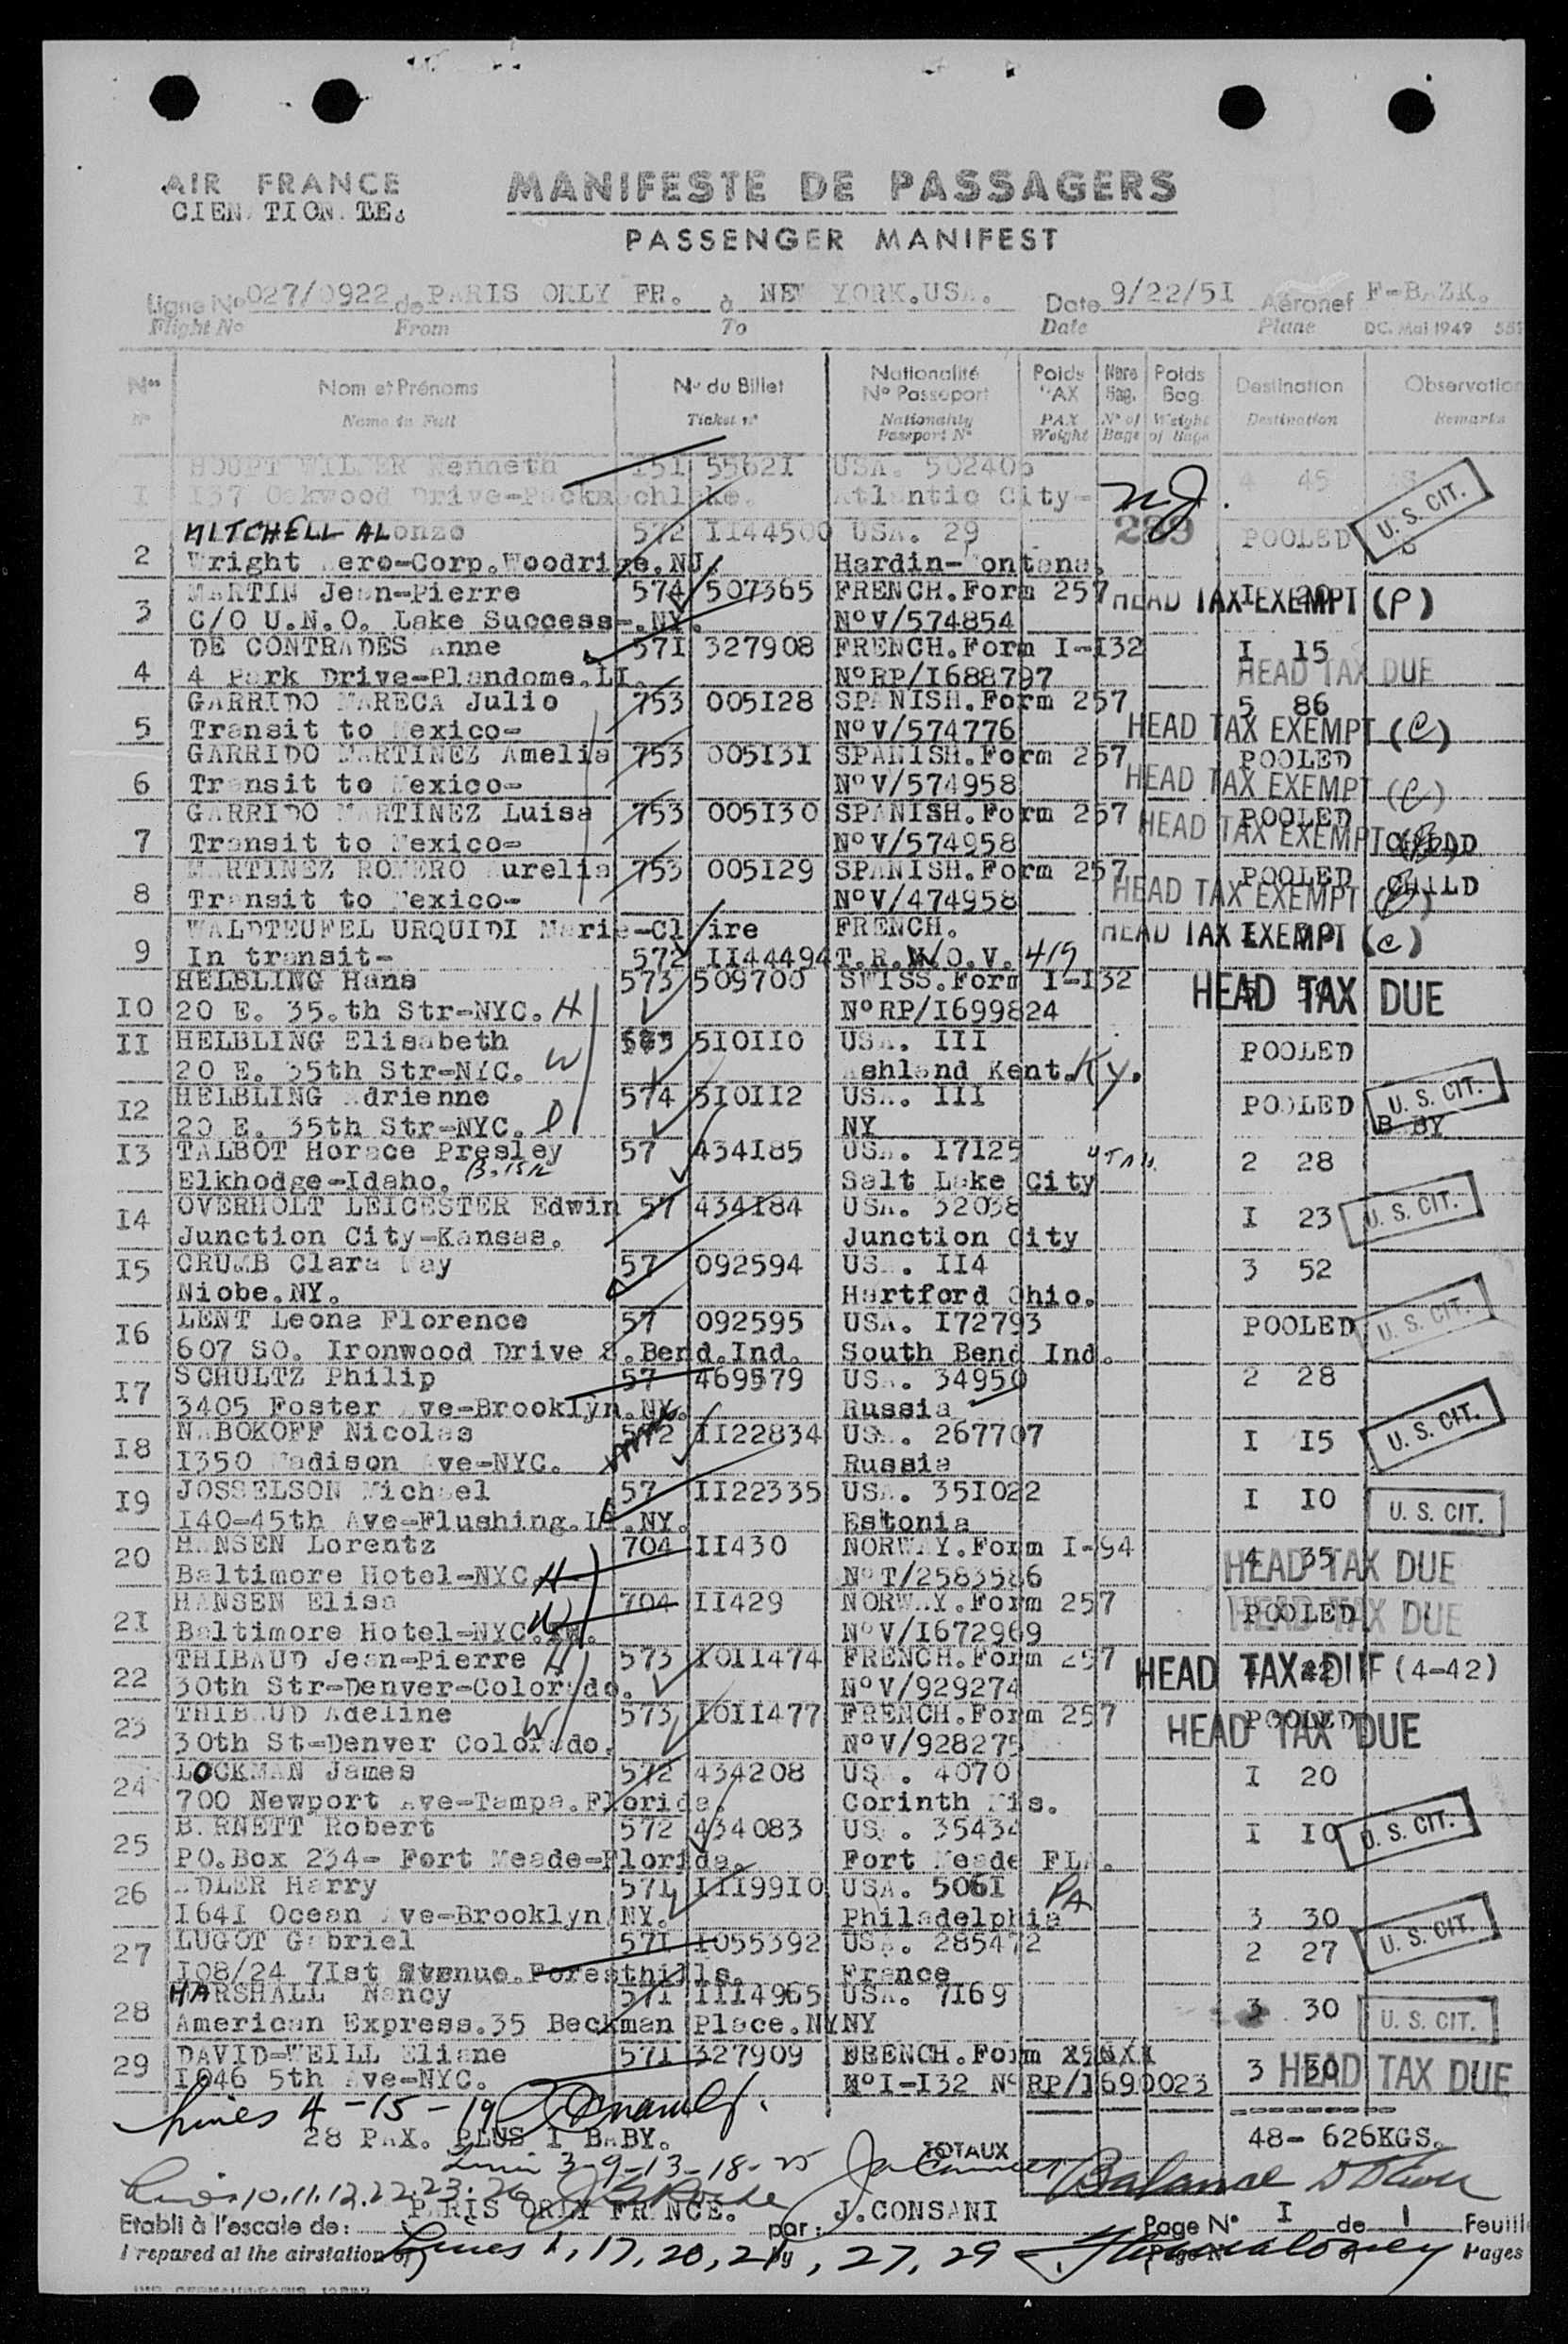 AIR FRANCE
MANIFESTE DE PASSAGERS
PASSENGER MANIFEST
Ligne No 027/0922 de PARIS ORLY FR. à NEW YORK.USA. Date 9/22/51 Aéronef F-BAZK.
Flight No From To Date Plane DC. Mai 1949
Nos Nom et Prénoms No du Billet Nationalité No Passeport Poids PAX Nbre Bag. Poids Bag. Destination Observation
No Name in Full Ticket no Nationality Passport No PAX Weight No of Bags Weight of Bags Destination Remarks
HOUPT WILMER Kenneth 151 55621 USA. 502406 4 45
I 137 Oakwood Drive- Atlantic City- NJ. U. S. CIT.
MITCHELL ALonzo 572 II44500 USA. 29 289 POOLED
2 Wright Aero-Corp.Woodridge.NJ. Hardin-Montana.
MARTIN Jean-Pierre 574 507365 FRENCH.Form 257 I 20 HEAD TAX EXEMPT (P)
3 C/O U.N.O. Lake Success-.NY. NoV/574854
DE CONTRADES Anne 57I 327908 FRENCH.Form I-I32 I I5
4 4 Park Drive-Plandome.LI. NoRP/I688797 HEAD TAX DUE
GARRIDO MARECA Julio 753 005I28 SPANISH.Form 257 5 86
5 Transit to Mexico- NoV/574776 HEAD TAX EXEMPT (C)
GARRIDO MARTINEZ Amelia 753 005I3I SPANISH.Form 257 POOLED
6 Transit to Mexico- NoV/574958 HEAD TAX EXEMPT (C)
GARRIDO MARTINEZ Luisa 753 005I30 SPANISH.Form 257 POOLED
7 Transit to Mexico- NoV/574958 HEAD TAX EXEMPT CHILD
MARTINEZ ROMERO Aurelia 753 005I29 SPANISH.Form 257 POOLED CHILD
8 Transit to Mexico- NoV/474958 HEAD TAX EXEMPT
WALDTEUFEL URQUIDI Marie-Claire FRENCH. HEAD TAX EXEMPT (C)
9 In transit- 572 II44494 T.R.W/O.V. 419
HELBLING Hans 573 509700 SWISS.Form I-I32 HEAD TAX DUE
I0 20 E. 35.th Str-NYC. H NoRP/I699824
II HELBLING Elisabeth 5I0II0 USA. III POOLED
20 E. 35th Str-NYC. W Ashland Kent. Ky.
I2 HELBLING Adrienne 574 5I0II2 USA. III POOLED U. S. CIT.
20 E. 35th Str-NYC. D NY BABY
I3 TALBOT Horace Presley 57 434I85 USA. I7I25 UTAH. 2 28
Elkhodge-Idaho. Salt Lake City
I4 OVERHOLT LEICESTER Edwin 57 434I84 USA. 32038 I 23 U. S. CIT.
Junction City-Kansas. Junction City
I5 CRUMB Clara May 57 092594 USA. II4 3 52
Niobe.NY. Hartford Ohio.
I6 LENT Leona Florence 57 092595 USA. I72793 POOLED U. S. CIT.
607 SO. Ironwood Drive S.Bend.Ind. South Bend Ind.
I7 SCHULTZ Philip 57 469579 USA. 34950 2 28
3405 Foster Ave-Brooklyn.NY. Russia
I8 NABOKOFF Nicolas 572 II22834 USA. 267707 I I5 U. S. CIT.
I350 Madison Ave-NYC. Russia
I9 JOSSELSON Michael 57 II22335 USA. 35I022 I I0 U. S. CIT.
I40-45th Ave-Flushing.LI.NY. Estonia
20 HANSEN Lorentz 704 II430 NORWAY.Form I-94 4 35 HEAD TAX DUE
Baltimore Hotel-NYC. H NoT/2583586
21 HANSEN Elisa 704 II429 NORWAY.Form 257 POOLED HEAD TAX DUE
Baltimore Hotel-NYC. W NoV/I672969
22 THIBAUD Jean-Pierre H 573 I0II474 FRENCH.Form 257 HEAD TAX DUE (4-42)
30th Str-Denver-Colorado. NoV/929274
23 THIBAUD Adeline W 573 I0II477 FRENCH.Form 257 POOLED HEAD TAX DUE
30th St-Denver Colorado. NoV/928275
24 LOCKMAN James 572 434208 USA. 4070 I 20
700 Newport Ave-Tampa.Florida. Corinth Mis.
25 BARNETT Robert 572 434083 USA. 35434 I I0 U. S. CIT.
PO.Box 234- Fort Meade-Florida. Fort Meade FLA.
26 ADLER Harry 57I III99I0 USA. 506I PA
I64I Ocean Ave-Brooklyn NY. Philadelphia 3 30
27 LUGOT Gabriel 57I I055392 USA. 285472 2 27 U. S. CIT.
I08/24 7Ist Avenue.Foresthills. France
28 HARSHALL Nancy 57I III4965 USA. 7I69 3 30 U. S. CIT.
American Express.35 Beckman Place.NY NY
29 DAVID-WEILL Eliane 57I 327909 FRENCH.Form 3 30 HEAD TAX DUE
I046 5th Ave-NYC. NoI-I32 No RP/I690023
Lines 4-15-19
28 PAX. PLUS I BABY. 48- 626KGS.
Lines 3-9-13-18-25 TOTAUX
Lines 10.11.12.22.23.26 Balance
Etabli à l'escale de: PARIS ORLY FRANCE. par: J.CONSANI Page No I de 1 Feuill
Prepared at the airstation of Lines 1, 17, 20, 21, 27, 29 by Page No of Pages